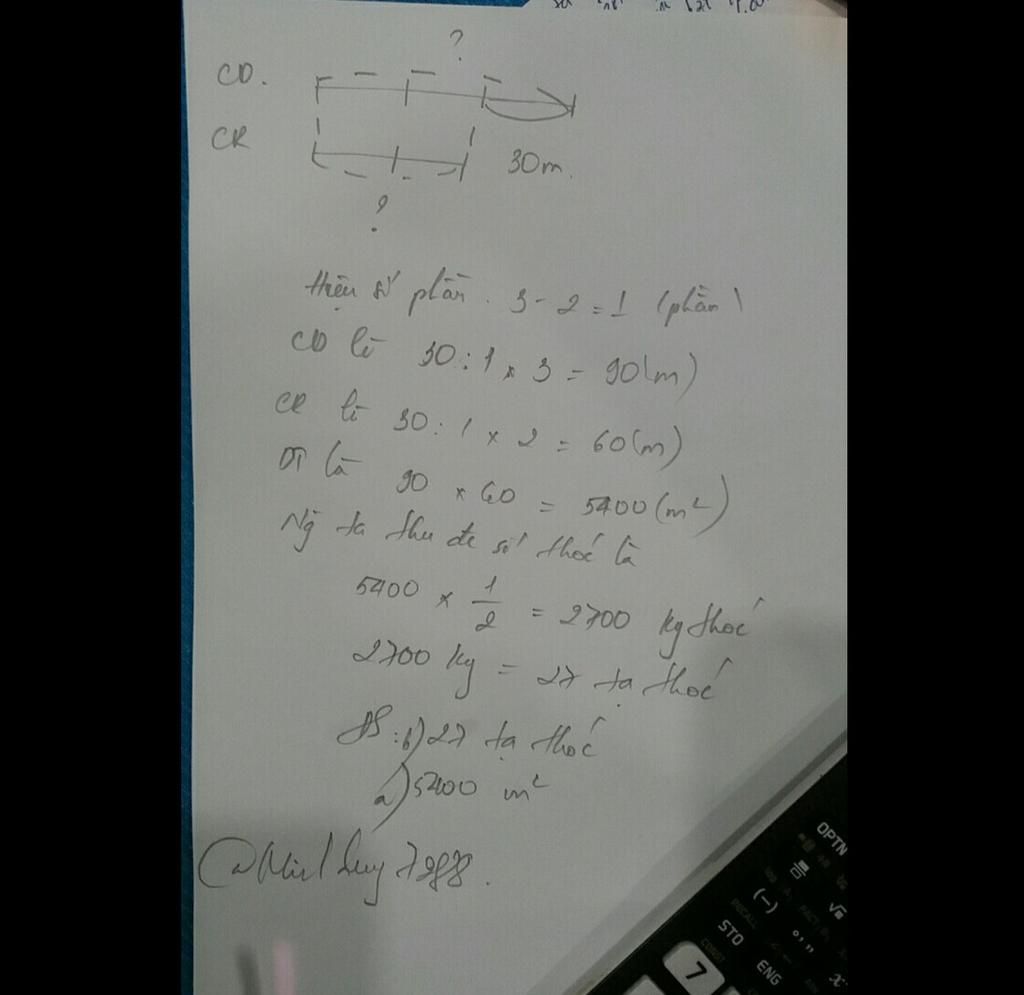 ?
CD.
CR
30m.
?
Hiệu số phần. 3 - 2 = 1 (phần)
CD là 30 : 1 × 3 = 90(m)
CR là 30 : 1 × 2 = 60(m)
DT là 90 × 60 = 5400 (m²)
Ng ta thu đc số thóc là
5400 × 1/2 = 2700 kg thóc
2700 kg = 27 tạ thóc
ĐS : b) 27 tạ thóc
a) 5400 m²
OPTN
(-)
STO
ENG
7